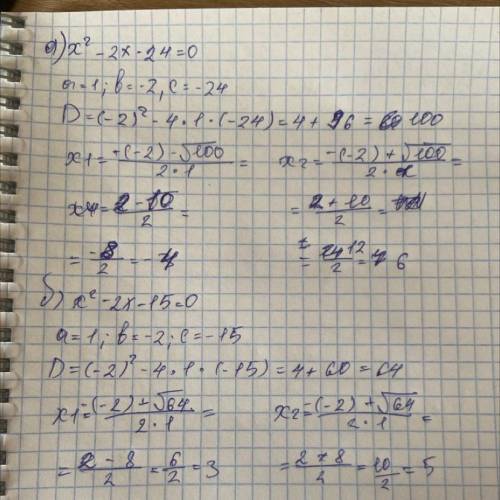 а) x² - 2x - 24 = 0
a = 1; b = -2, c = -24
D = (-2)² - 4 · 1 · (-24) = 4 + 96 = 100
x1 = -(-2) - √100 / 2 · 1 = x2 = -(-2) + √100 / 2 · 1 =
= 2 - 10 / 2 = = 2 + 10 / 2 =
= -8 / 2 = -4 = 12 / 2 = 6
б) x² - 2x - 15 = 0
a = 1; b = -2; c = -15
D = (-2)² - 4 · 1 · (-15) = 4 + 60 = 64
x1 = -(-2) + √64 / 2 · 1 = x2 = -(-2) + √64 / 2 · 1 =
= 2 - 8 / 2 = 6 / 2 = 3 = 2 + 8 / 2 = 10 / 2 = 5